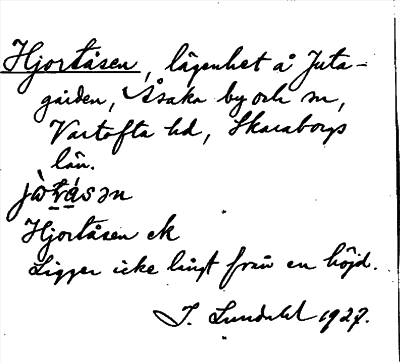 Hjortåsen, lägenhet å Juta-
gården, Åsaka by och sn,
Vartofta hd, Skaraborgs
län.
jòtåsən
Hjortåsen ek
Ligger icke långt från en höjd.
I. Lundahl 1927.